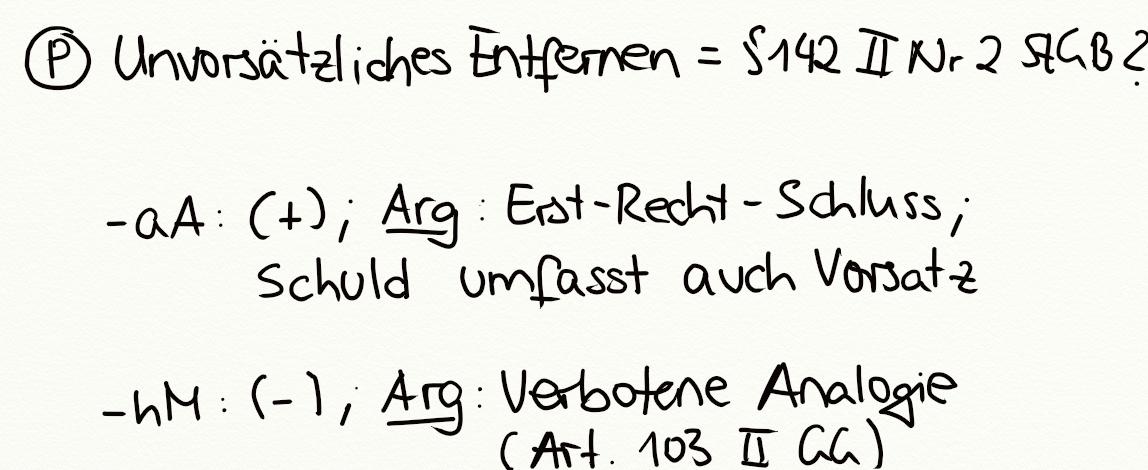 Ⓟ Unvorsätzliches Entfernen = § 142 II Nr 2 StGB?
- aA: (+); Arg: Erst-Recht-Schluss;
Schuld umfasst auch Vorsatz
- hM: (-); Arg: Verbotene Analogie
(Art. 103 II GG)